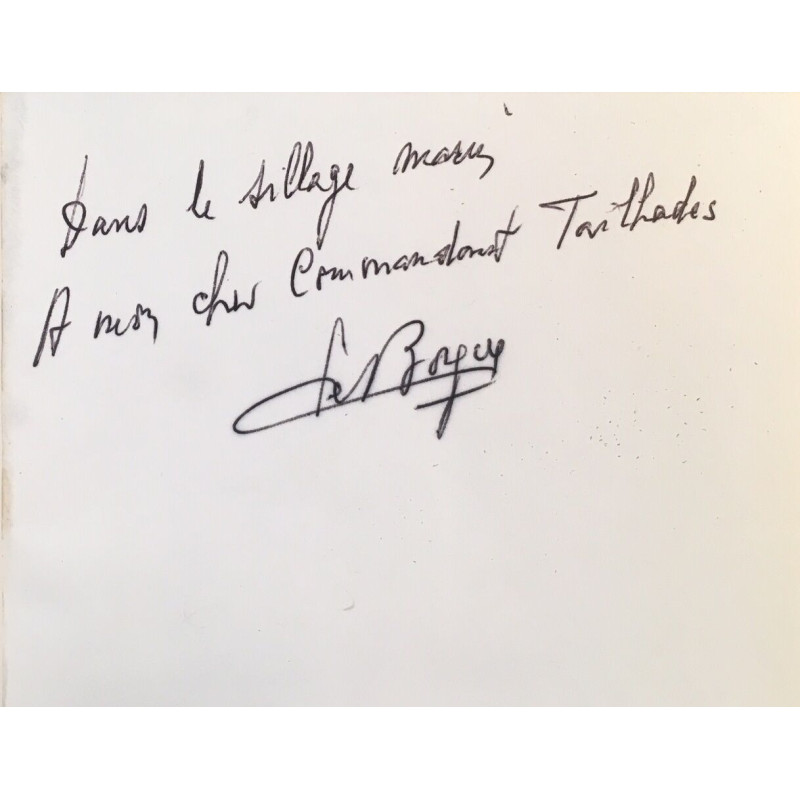 Dans le sillage marin
A mon cher Commandant Tailhades